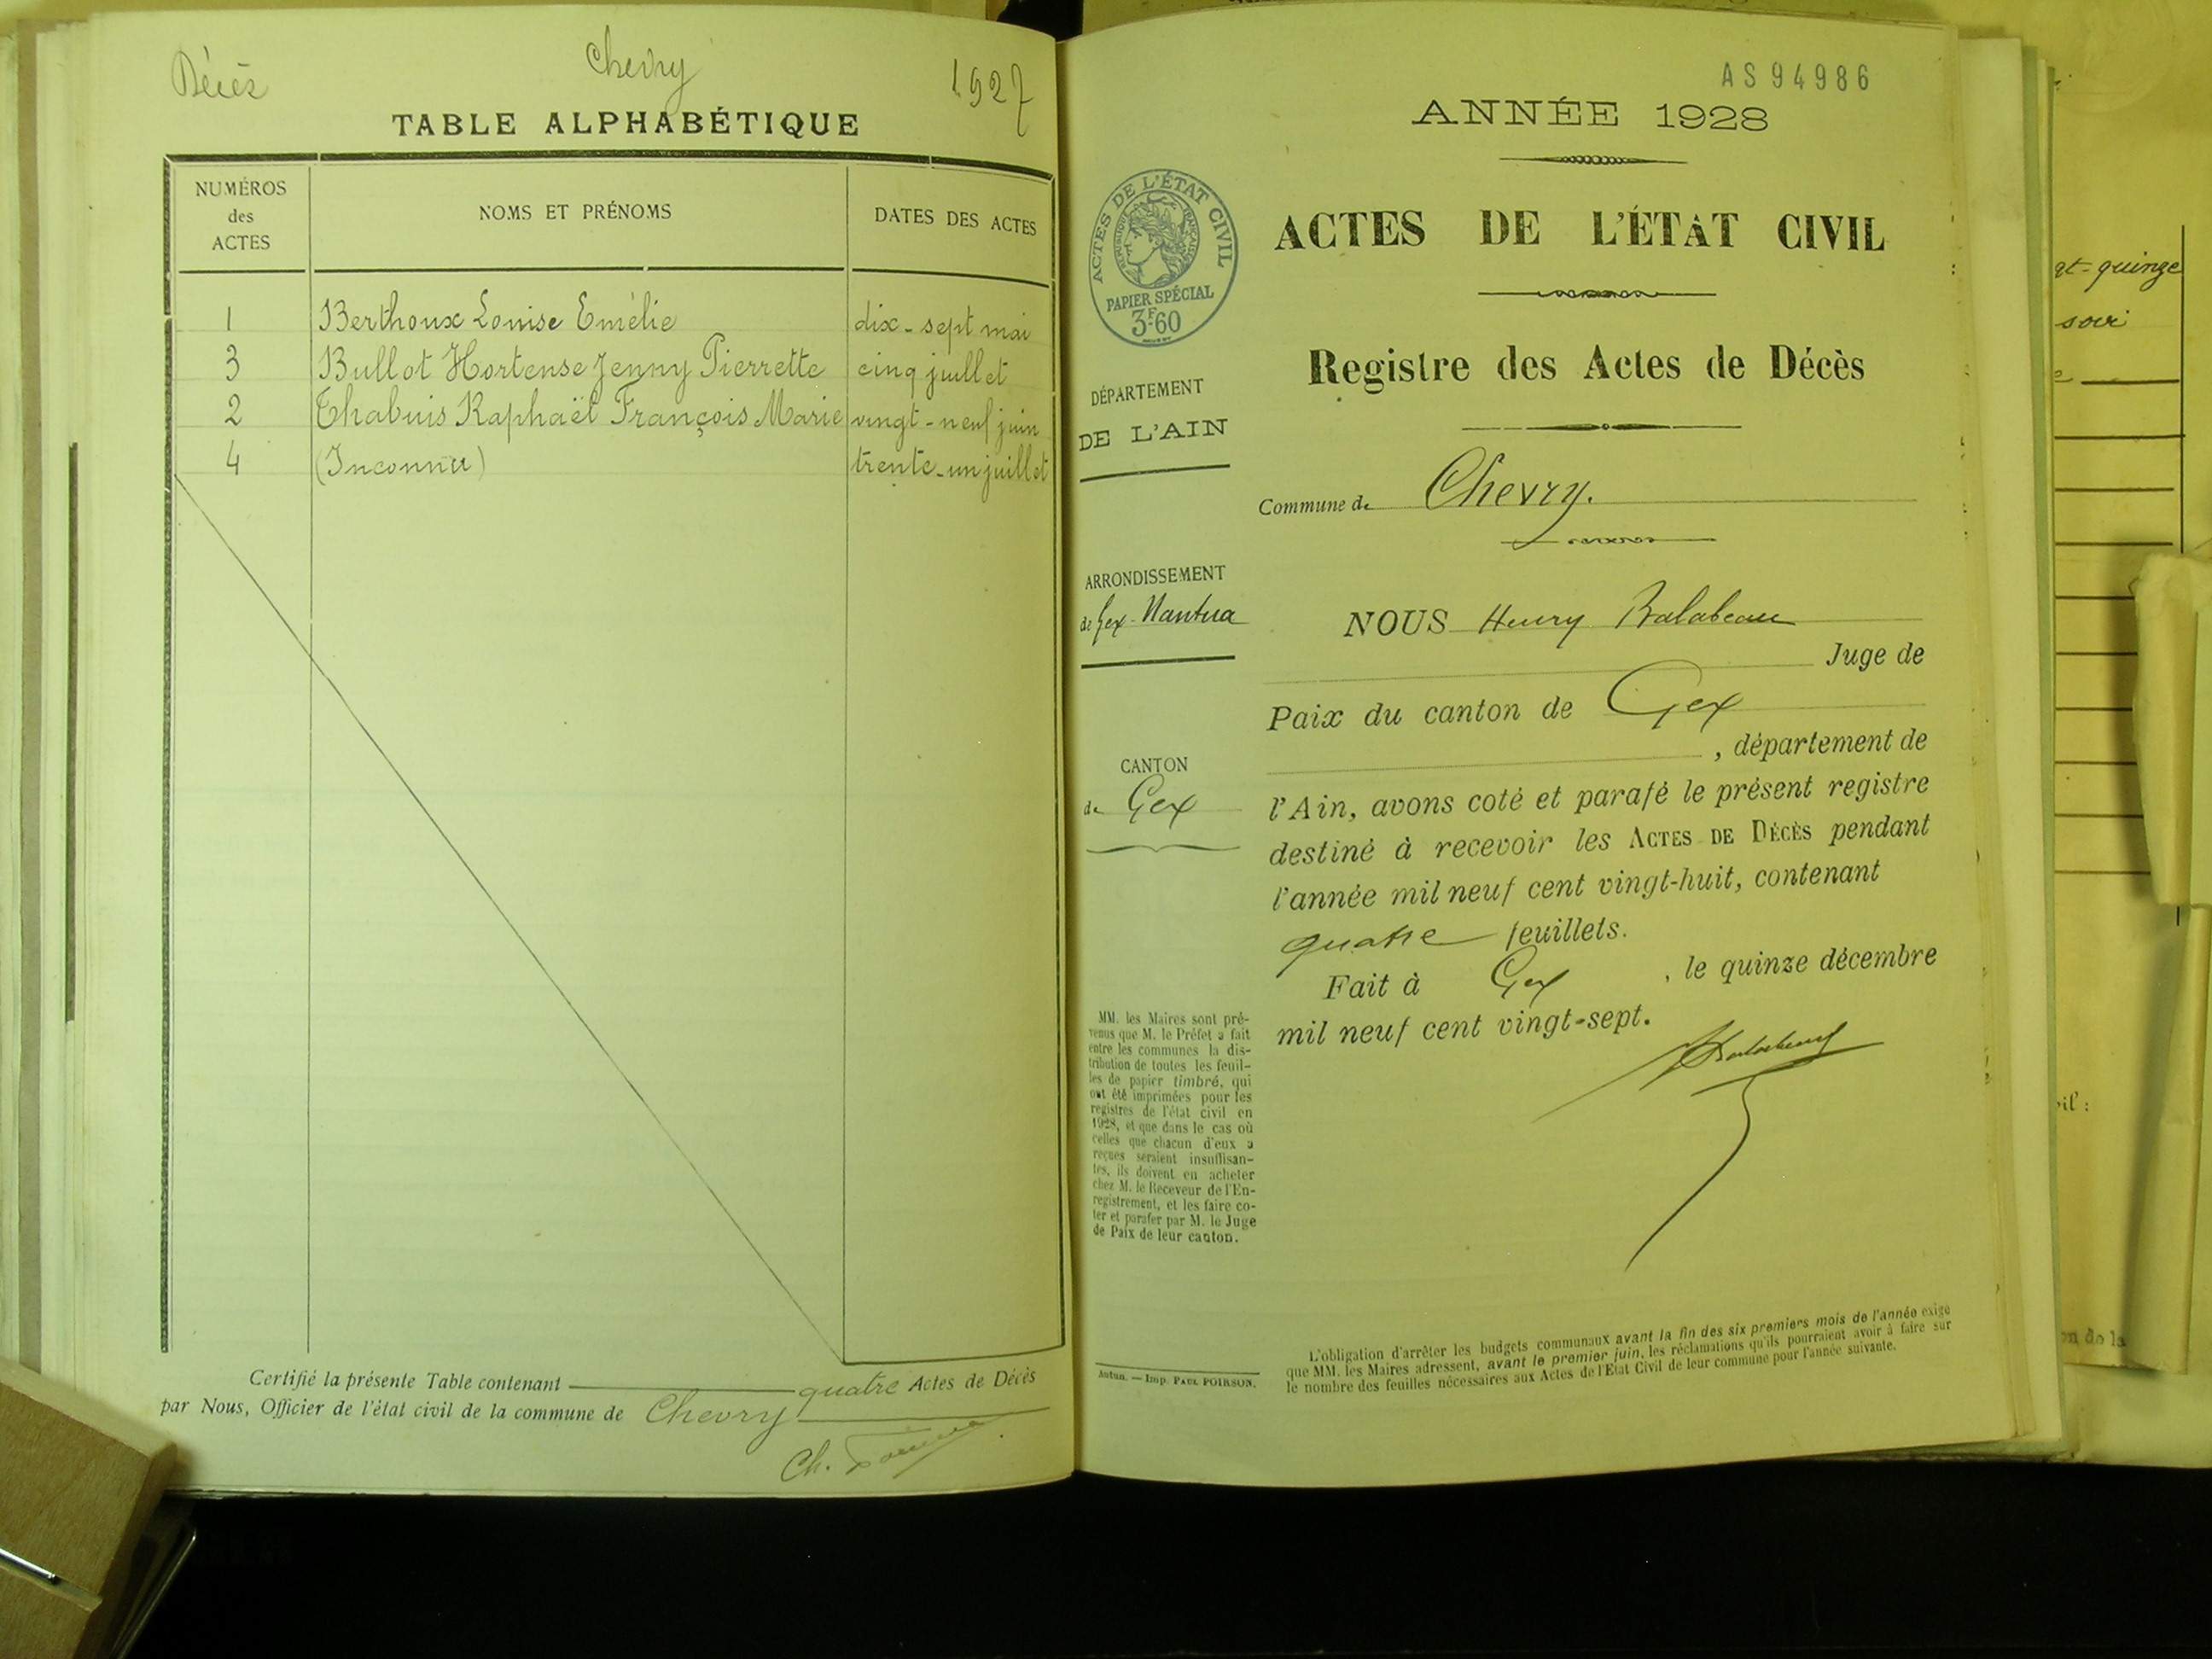 Décès
Chevry
1927
TABLE ALPHABÉTIQUE
NUMÉROS
des
ACTES
NOMS ET PRÉNOMS
DATES DES ACTES
1 Berthoux Louise Emélie dix-sept mai
3 Bullot Hortense Jenny Pierrette cinq juillet
2 Chabuis Raphaël François Marie vingt-neuf juin
4 (Inconnu) trente-un juillet
Certifié la présente Table contenant quatre Actes de Décès
par Nous, Officier de l'état civil de la commune de Chevry
Ch.
AS94986
ANNÉE 1928
ACTES DE L'ÉTAT CIVIL
RÉPUBLIQUE FRANÇAISE
PAPIER SPÉCIAL
3F60
DÉPARTEMENT
DE L'AIN
ARRONDISSEMENT
de Gex-Nantua
CANTON
de Gex
MM. les Maires sont pré-
venus que M. le Préfet a fait
entre les communes la dis-
tribution de toutes les feuil-
les de papier timbré, qui
ont été imprimées pour les
registres de l'état civil en
1928, et que dans le cas où
celles que chacun d'eux a
reçues seraient insuffisan-
tes, ils doivent en acheter
chez M. le Receveur de l'En-
registrement, et les faire co-
ter et parafer par M. le Juge
de Paix de leur canton.
Autun. — Imp. PAUL POIRSON.
ACTES DE L'ÉTAT CIVIL
Registre des Actes de Décès
Commune de Chevry.
NOUS Henry Balabeau
Juge de
Paix du canton de Gex
, département de
l'Ain, avons coté et parafé le présent registre
destiné à recevoir les ACTES DE DÉCÈS pendant
l'année mil neuf cent vingt-huit, contenant
quatre feuillets.
Fait à Gex, le quinze décembre
mil neuf cent vingt-sept.
L'obligation d'arrêter les budgets communaux avant la fin des six premiers mois de l'année exige
que MM. les Maires adressent, avant le premier juin, les réclamations qu'ils pourraient avoir à faire sur
le nombre des feuilles nécessaires aux Actes de l'État Civil de leur commune pour l'année suivante.
gt-quinze
il :
on de la